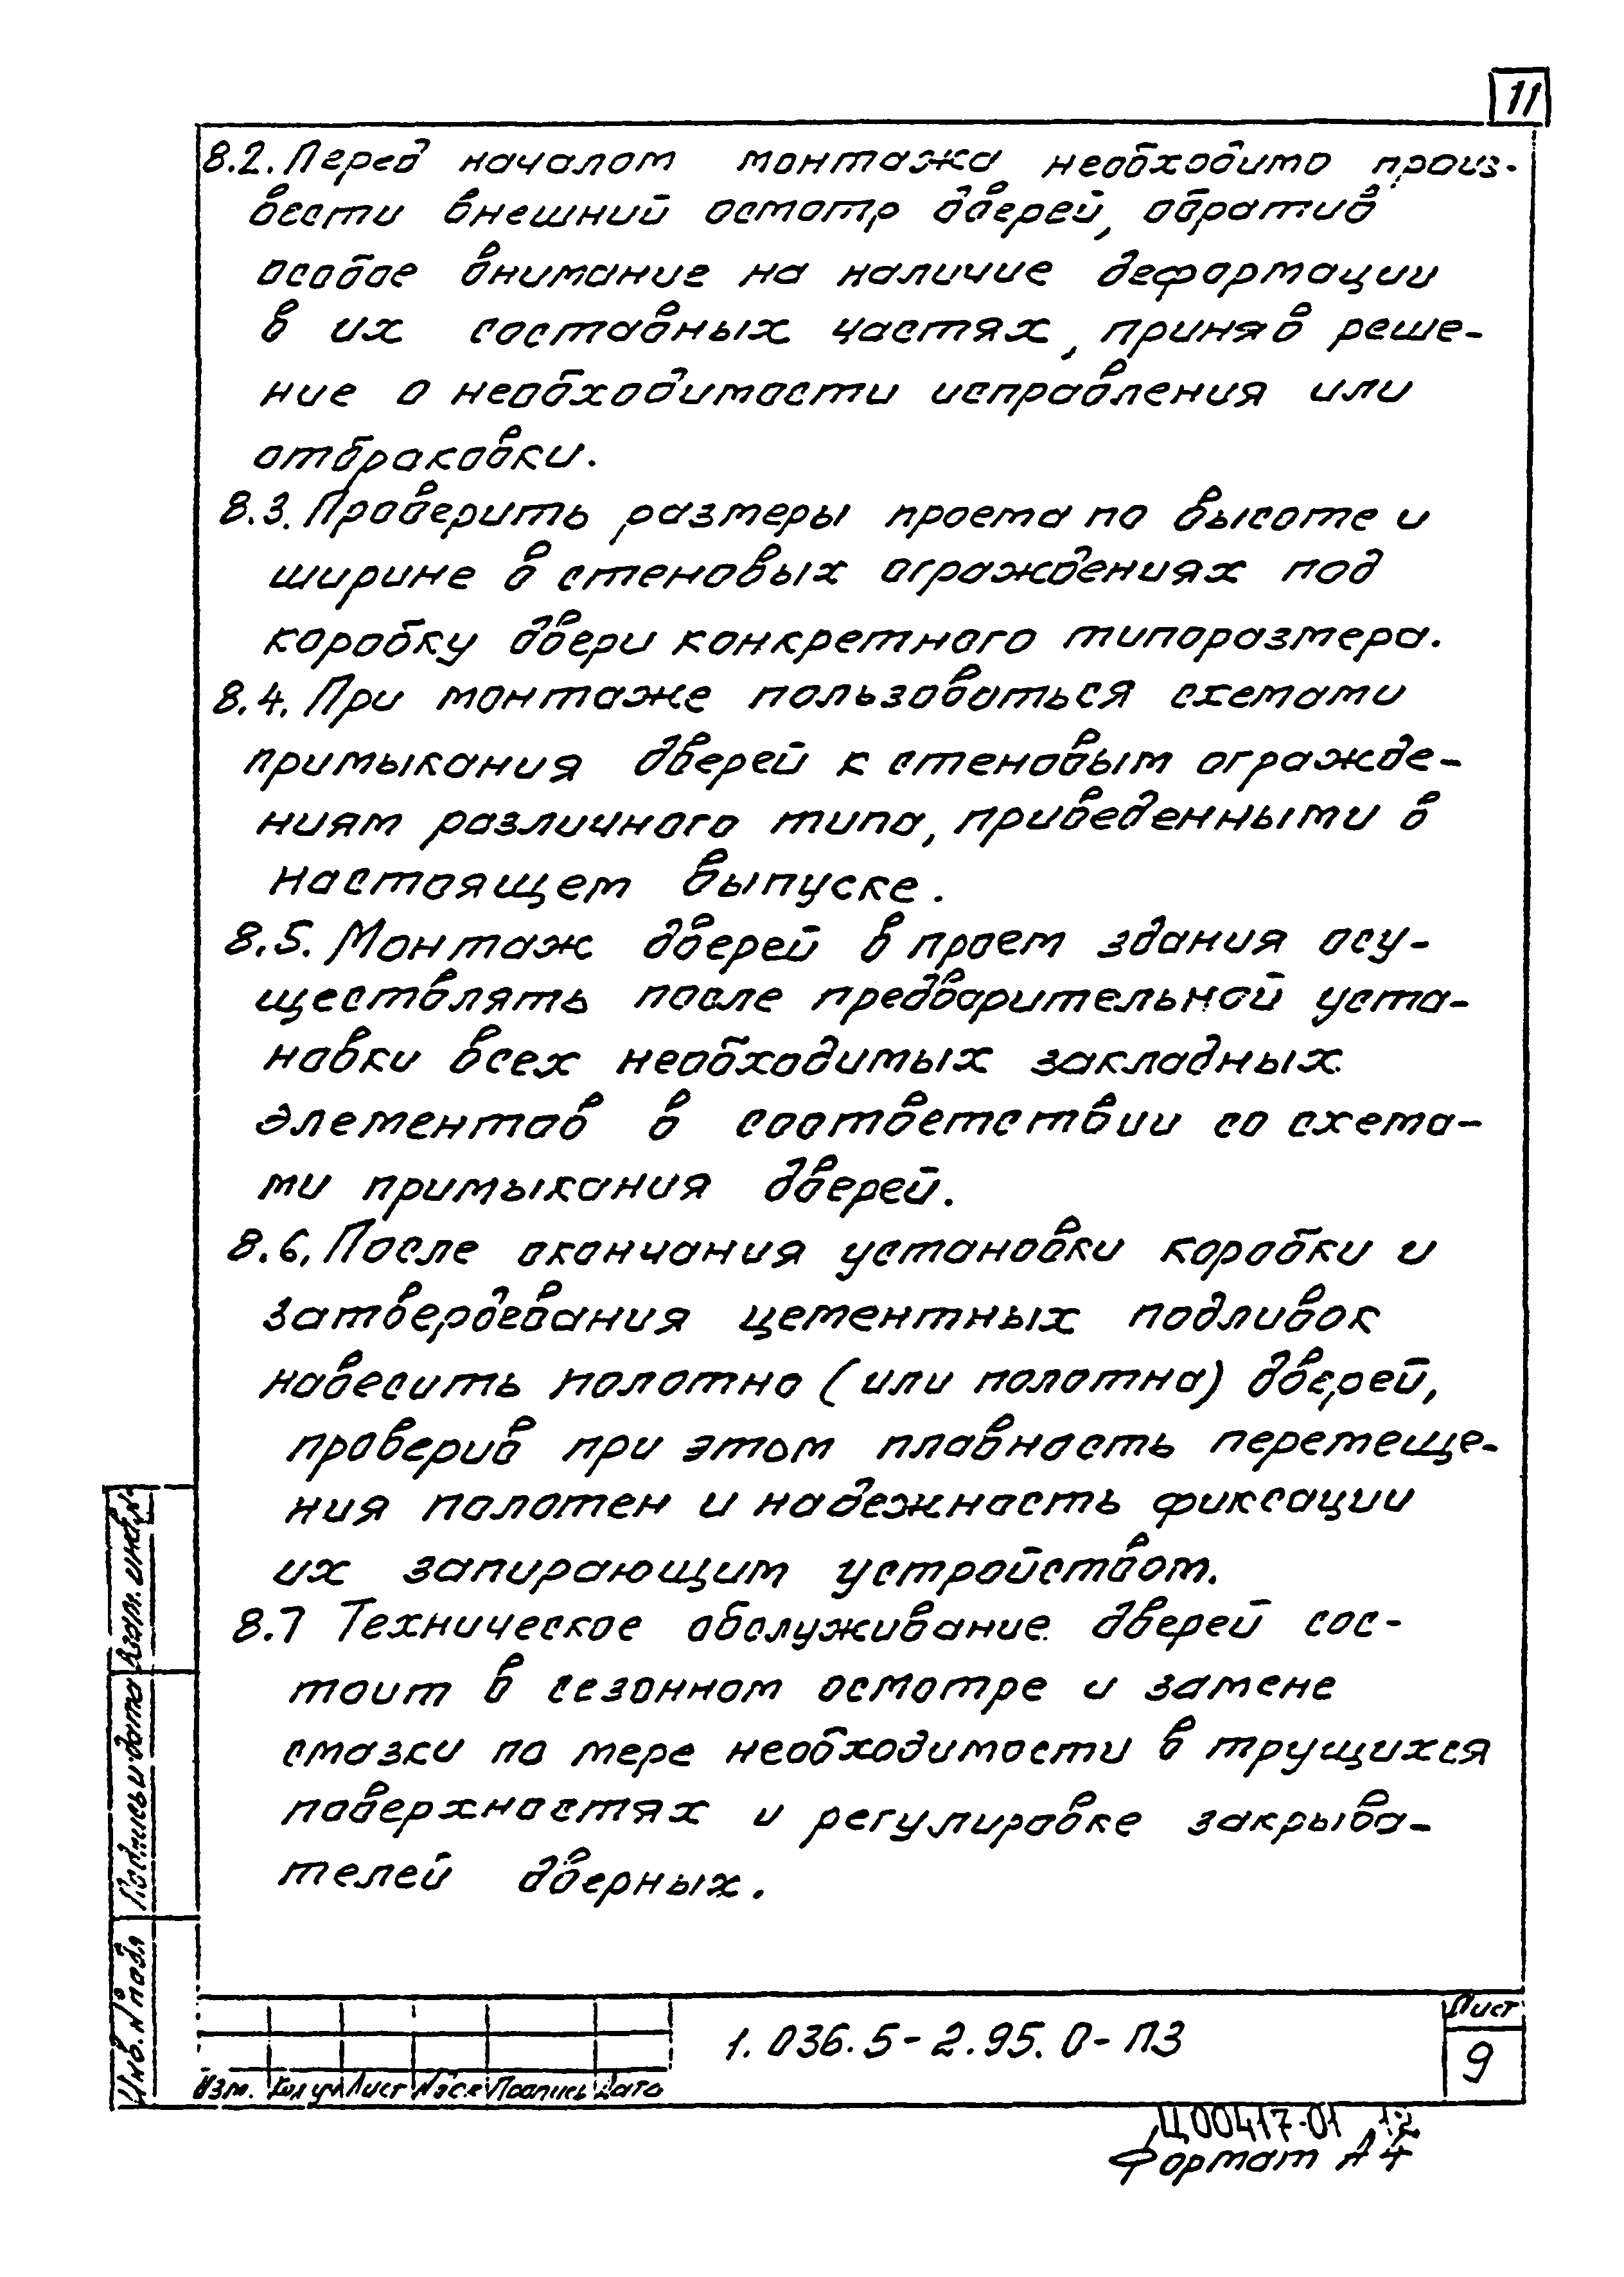 11
8.2. Перед началом монтажа необходимо произ-
вести внешний осмотр дверей, обратив
особое внимание на наличие деформации
в их составных частях, приняв реше-
ние о необходимости исправления или
отбраковки.
8.3. Проверить размеры проема по высоте и
ширине в стеновых ограждениях под
коробку двери конкретного типоразмера.
8.4. При монтаже пользоваться схемами
примыкания дверей к стеновым огражде-
ниям различного типа, приведенными в
настоящем выпуске.
8.5. Монтаж дверей в проем здания осу-
ществлять после предварительной уста-
новки всех необходимых закладных
элементов в соответствии со схема-
ми примыкания дверей.
8.6. После окончания установки коробки и
затвердевания цементных подливок
навесить полотно (или полотна) дверей,
проверив при этом плавность перемеще-
ния полотен и надежность фиксации
их запирающим устройством.
8.7 Техническое обслуживание дверей сос-
тоит в сезонном осмотре и замене
смазки по мере необходимости в трущихся
поверхностях и регулировке закрыва-
телей дверных.
Взам. инв. №
Подпись и дата
Инв. № подл
Изм. Кол уч Лист №док Подпись Дата
1.036.5-2.95.0-ПЗ
Лист
9
Ц00417-01 12
Формат А4